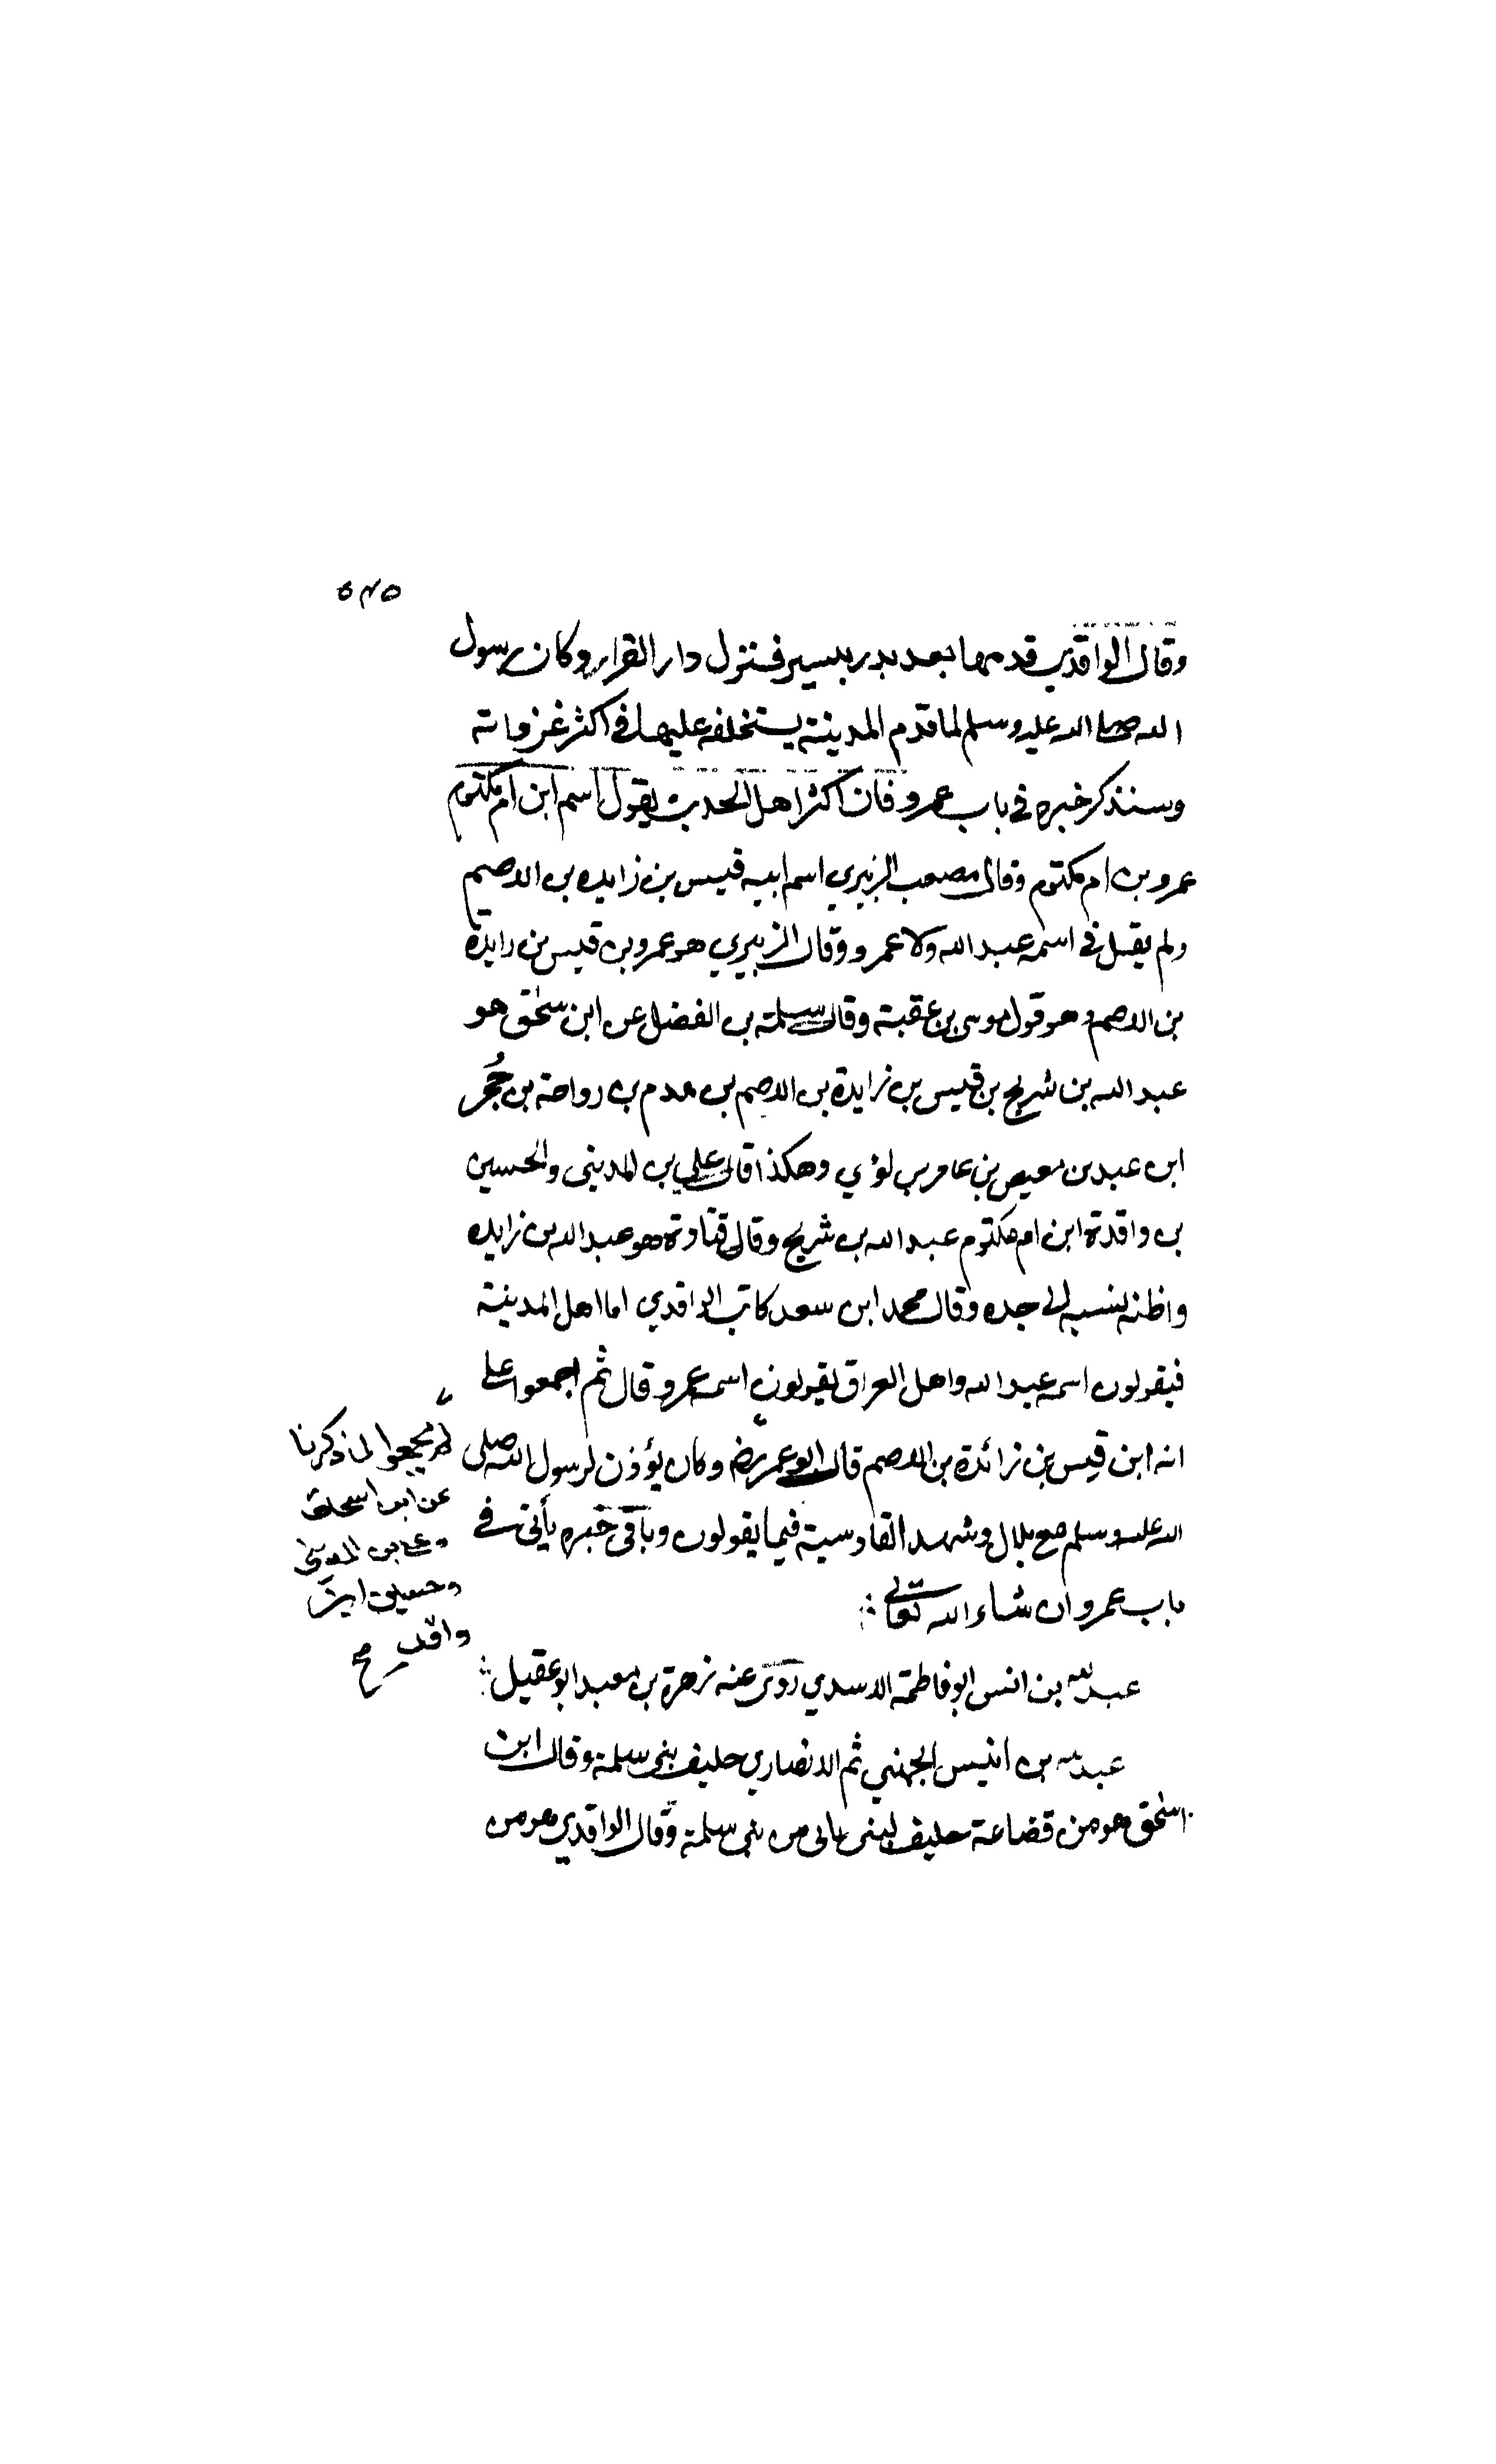 ٥٣٥
وقال الواقدي قدمها بعد بدر بيسير فنزل دار القراء وكان رسول
الله صلى الله عليه وسلم لما قدم المدينة يستخلفه عليها في اكثر غزواته
وسنذكر خبره في باب عمرو فان اكثر اهل الحديث يقول اسم ابن ام مكتوم
عمرو بن ام مكتوم وقال مصعب الزبيري اسم ابيه قيس بن زايده بن الاصم
ولم يقل في اسمه عبد الله ولا عمرو وقال الزبيري هو عمرو بن قيس بن زايدة
بن الاصم وهو قول موسى بن عقبة وقال سلمة بن الفضل عن ابن سحق هو
عبد الله بن شريح بن قيس بن زايدة بن الاصم بن هدم بن رواحة بن حُجر
ابن عبد بن معيص بن عامر بن لؤي وهكذا قال علي بن المديني والحسين
بن واقدة ابن ام مكتوم عبد الله بن شريح وقال قتادة هو عبد الله بن زايده
واظنه نسبه الى جده وقال محمد ابن سعد كاتب الواقدي اما اهل المدينة
فيقولون اسمه عبد الله واهل العراق يقولون اسمه عمرو قال ثم اجمعوا على
انه ابن قيس بن زائدة بن الاصم قال ابو عمر رضه وكان يؤذن لرسول الله صلى
لم يجمعوا لما ذكرنا
عن ابن اسحاق
وعلي بن المديني
وحسين ابن
واقد صح
الله عليه وسلم مع بلال وشهد القادسية فيما يقولون وباقي خبره يأتي في
باب عمرو ان شاء الله تعالى
عبد الله بن انس ابو فاطمة الاسدي روى عنه زهرة بن معبد ابو عقيل
عبد الله بن انيس الجهني ثم الانصاري حليف بني سلمة وقال ابن
اسحق هو من قضاعة حليف لبني نابي من بني سلمة وقال الواقدي هو من